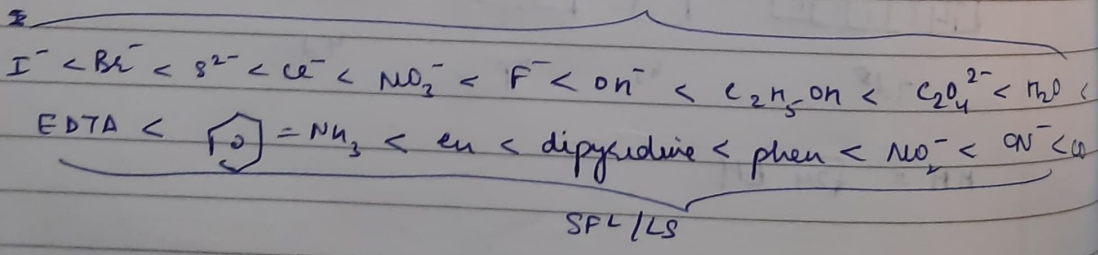 I⁻ < Br⁻ < S²⁻ < Cl⁻ < NO₃⁻ < F⁻ < OH⁻ < C₂H₅OH < C₂O₄²⁻ < H₂O <
EDTA < = NH₃ < en < dipyridine < phen < NO₂⁻ < CN⁻ < CO
SFL/LS